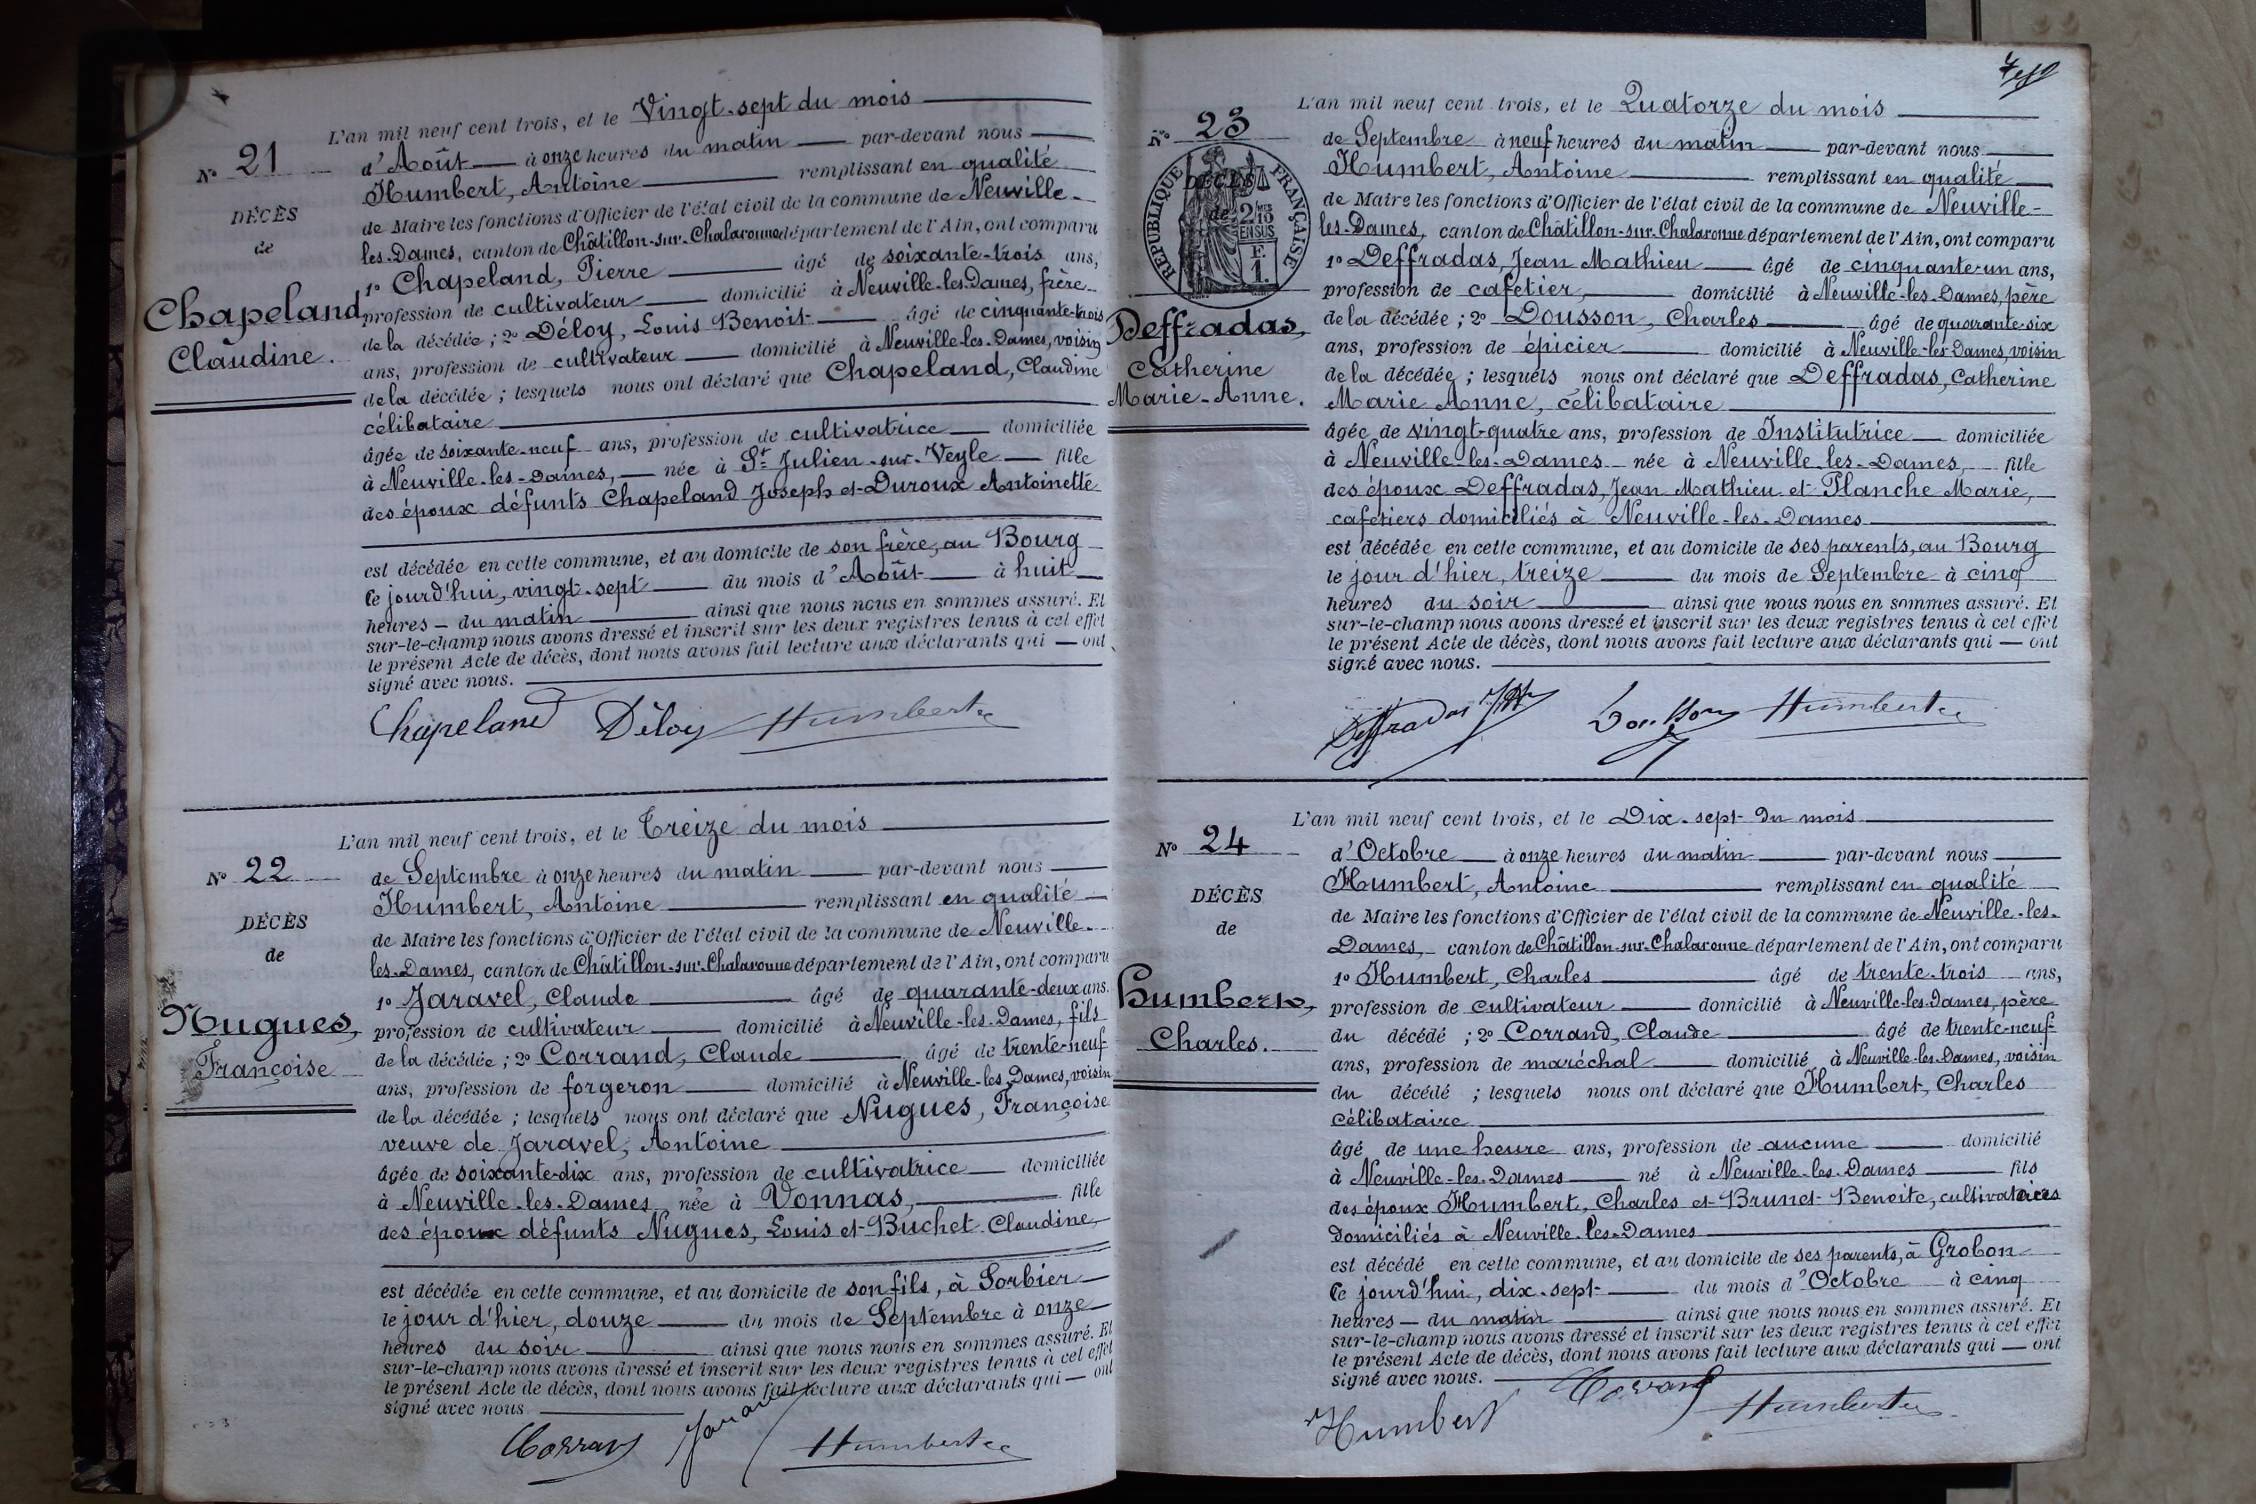 L'an mil neuf cent trois, et le Vingt-sept du mois
No 21
d'Août à onze heures du matin par-devant nous
Humbert, Antoine remplissant en qualité
DÉCÈS
de Maire les fonctions d'Officier de l'état civil de la commune de Neuville-
de
les-Dames, canton de Châtillon-sur-Chalaronne département de l'Ain, ont comparu
1o Chapeland, Pierre âgé de soixante-trois ans,
Chapeland
profession de cultivateur domicilié à Neuville-les-Dames, frère
Claudine.
de la décédée ; 2o Déloy, Louis Benoit âgé de cinquante-trois
ans, profession de cultivateur domicilié à Neuville-les-Dames, voisin
de la décédée ; lesquels nous ont déclaré que Chapeland, Claudine
célibataire
âgée de soixante-neuf ans, profession de cultivatrice domiciliée
à Neuville-les-Dames, née à St Julien-sur-Veyle fille
des époux défunts Chapeland Joseph et Duroux Antoinette
est décédée en cette commune, et au domicile de son frère, au Bourg
ce jourd'hui, vingt-sept du mois d'Août à huit
heures du matin ainsi que nous nous en sommes assuré. Et
sur-le-champ nous avons dressé et inscrit sur les deux registres tenus à cet effet
le présent Acte de décès, dont nous avons fait lecture aux déclarants qui — ont
signé avec nous.
Chapeland Déloy Humbert
L'an mil neuf cent trois, et le Treize du mois
No 22
de Septembre à onze heures du matin par-devant nous
Humbert, Antoine remplissant en qualité
DÉCÈS
de Maire les fonctions d'Officier de l'état civil de la commune de Neuville-
de
les-Dames, canton de Châtillon-sur-Chalaronne département de l'Ain, ont comparu
1o Jaravel, Claude âgé de quarante-deux ans.
Nugues,
profession de cultivateur domicilié à Neuville-les-Dames, fils
Françoise
de la décédée ; 2o Corrand, Claude âgé de trente-neuf
ans, profession de forgeron domicilié à Neuville-les-Dames, voisin
de la décédée ; lesquels nous ont déclaré que Nugues, Françoise
veuve de Jaravel, Antoine
âgée de soixante-dix ans, profession de cultivatrice domiciliée
à Neuville-les-Dames née à Vonnas, fille
des époux défunts Nugues, Louis et Buchet Claudine,
est décédée en cette commune, et au domicile de son fils, à Sorbier
le jour d'hier, douze du mois de Septembre à onze
heures du soir ainsi que nous nous en sommes assuré. Et
sur-le-champ nous avons dressé et inscrit sur les deux registres tenus à cet effet
le présent Acte de décès, dont nous avons fait lecture aux déclarants qui — ont
signé avec nous
Corrand Jaravel Humbert
L'an mil neuf cent trois, et le Quatorze du mois
No 23
de Septembre à neuf heures du matin par-devant nous
Humbert, Antoine remplissant en qualité
RÉPUBLIQUE FRANÇAISE
DÉCÈS
de
2/10 EN SUS
F. 1.
de Maire les fonctions d'Officier de l'état civil de la commune de Neuville-
les-Dames, canton de Châtillon-sur-Chalaronne département de l'Ain, ont comparu
1o Deffradas, Jean Mathieu âgé de cinquante-un ans,
profession de cafetier, domicilié à Neuville-les-Dames, père
Deffradas,
de la décédée ; 2o Dousson, Charles âgé de quarante-six
ans, profession de épicier domicilié à Neuville-les-Dames, voisin
Catherine
de la décédée ; lesquels nous ont déclaré que Deffradas, Catherine
Marie-Anne.
Marie Anne, célibataire
âgée de vingt-quatre ans, profession de Institutrice domiciliée
à Neuville-les-Dames née à Neuville-les-Dames, fille
des époux Deffradas, Jean Mathieu et Planche Marie,
cafetiers domiciliés à Neuville-les-Dames
est décédée en cette commune, et au domicile de ses parents, au Bourg
le jour d'hier, treize du mois de Septembre à cinq
heures du soir ainsi que nous nous en sommes assuré. Et
sur-le-champ nous avons dressé et inscrit sur les deux registres tenus à cet effet
le présent Acte de décès, dont nous avons fait lecture aux déclarants qui — ont
signé avec nous.
Deffradas Dousson Humbert
L'an mil neuf cent trois, et le Dix-sept du mois
No 24
d'Octobre à onze heures du matin par-devant nous
Humbert, Antoine remplissant en qualité
DÉCÈS
de Maire les fonctions d'Officier de l'état civil de la commune de Neuville-les-
de
Dames, canton de Châtillon-sur-Chalaronne département de l'Ain, ont comparu
1o Humbert, Charles âgé de trente-trois ans,
Humbert,
profession de cultivateur domicilié à Neuville-les-Dames, père
Charles.
du décédé ; 2o Corrand, Claude âgé de trente-neuf
ans, profession de maréchal domicilié à Neuville-les-Dames, voisin
du décédé ; lesquels nous ont déclaré que Humbert, Charles
célibataire
âgé de une heure ans, profession de aucune domicilié
à Neuville-les-Dames né à Neuville-les-Dames fils
des époux Humbert, Charles et Brunet Benoite, cultivateurs
domiciliés à Neuville-les-Dames
est décédé en cette commune, et au domicile de ses parents, à Grobon
ce jourd'hui, dix-sept du mois d'Octobre à cinq
heures du matin ainsi que nous nous en sommes assuré. Et
sur-le-champ nous avons dressé et inscrit sur les deux registres tenus à cet effet
le présent Acte de décès, dont nous avons fait lecture aux déclarants qui — ont
signé avec nous.
Humbert Corrand Humbert